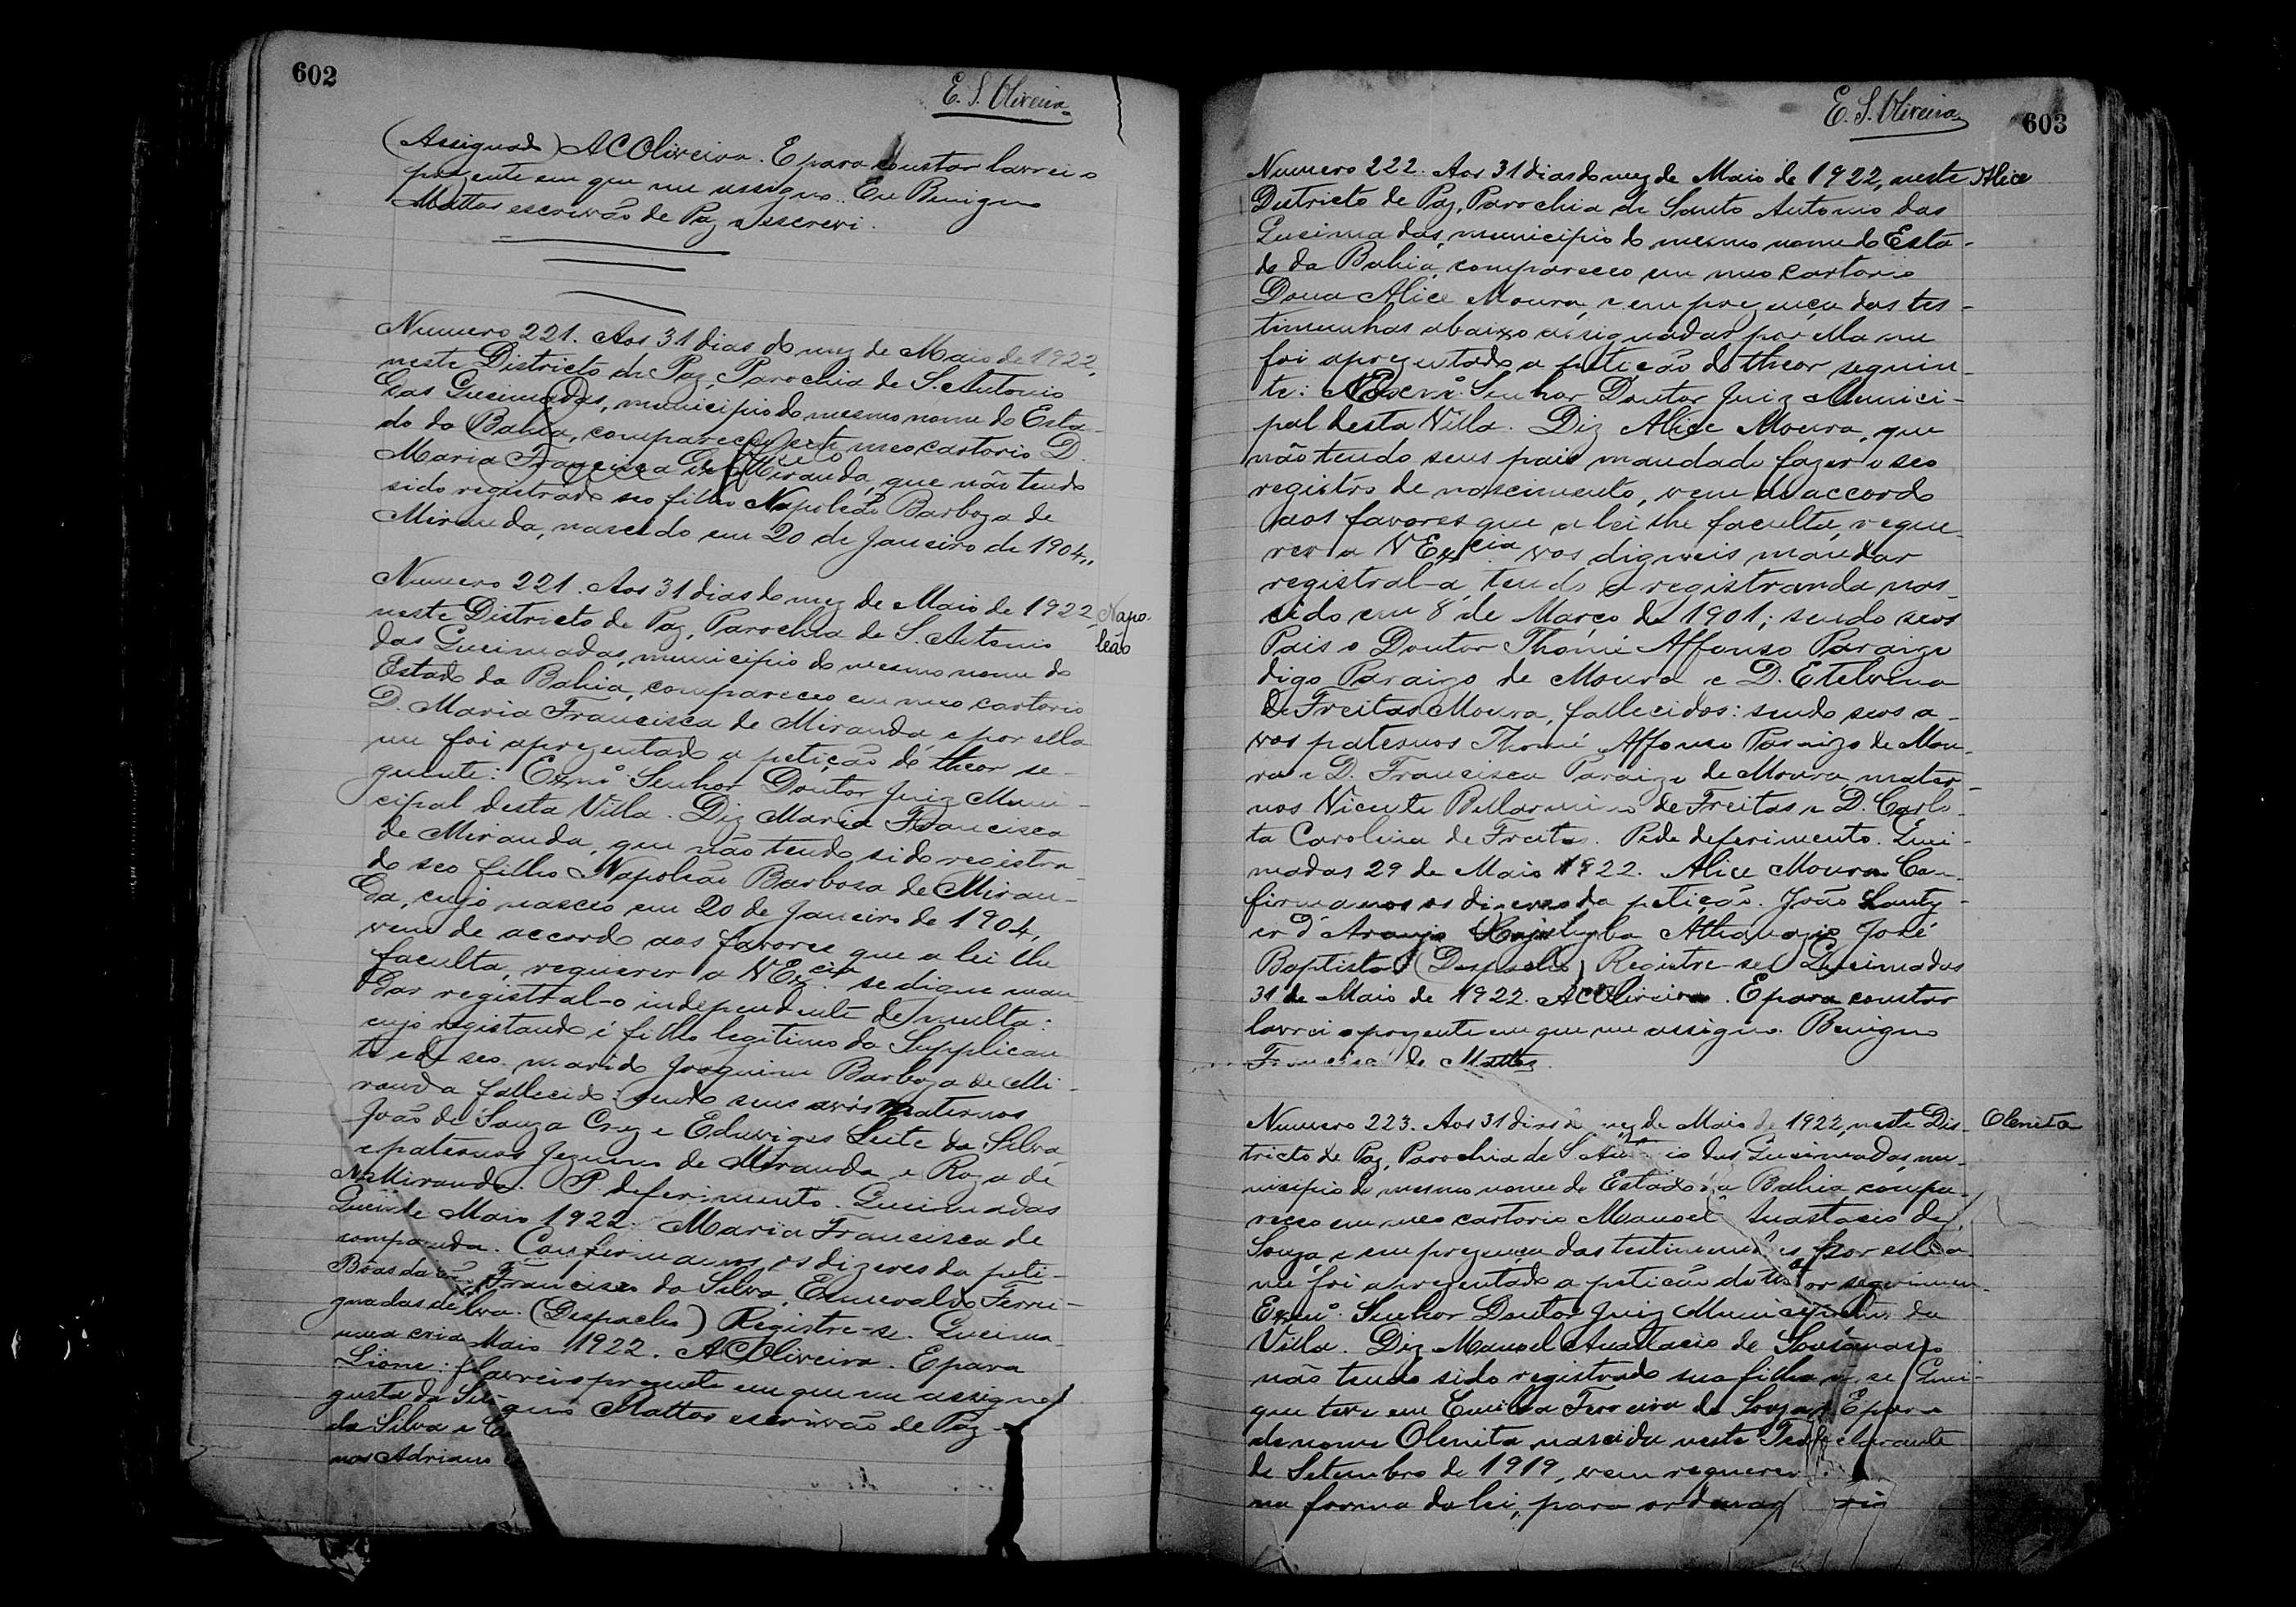 602
E. S. Oliveira
(Assignado) A C Oliveira. E para constar lavrei o
prezente em que me assigno. Eu Benigno
Mattos escrivão de Paz o escrevi.
Numero 221. Aos 31 dias do mez de Maio de 1922,
neste Districto de Paz, Parochia de S. Antonio
das Queimadas, municipio do mesmo nome do Esta-
do da Bahia, compareceo meo cartorio D.
Maria Francisca de Miranda, que não tendo
sido registrado seo filho Napoleão Barboza de
Miranda, nascido em 20 de Janeiro de 1904,,
Numero 221. Aos 31 dias do mez de Maio de 1922,
Napo-
leão
neste Districto de Paz, Parochia de S. Antonio
das Queimadas, municipio do mesmo nome do
Estado da Bahia, compareceo em meo cartorio
D. Maria Francisca de Miranda, e por ella
me foi aprezentado a petição do theor se-
guinte: Exmº. Senhor Doutor Juiz Muni-
cipal desta Villa. Diz Maria Francisca
de Miranda, que não tendo sido registra-
do seo filho Napoleão Barbosa de Miran-
da, cujo nasceo em 20 de Janeiro de 1904,
vem de accordo aos favores que a lei lhe
faculta, requerer a V Excia. se digne man-
dar registral-o independente de multa:
cujo registando é filho legitimo da Supplican
te e de seo marido Joaquim Barboza de Mi-
randa fallecido: sendo seus avós maternos
João de Souza Cruz e Eduviges Leite da Silva
e paternos Jezuino de Miranda e Roza de
Miranda. P. deferimento. Queimadas
de Maio 1922. Maria Francisca de
Confirmamos os dizeres da peti-
Francisco da Silva, Esmeraldo Ferri-
(Despacho) Registre-se. Queima-
Maio 1922. A C Oliveira. E para
lavrei o prezente em que me assigno
Mattos escrivão de Paz
da Silva e
nos Adriano
E. S. Oliveira
603
Numero 222. Aos 31 dias do mez de Maio de 1922, neste
Alice
Districto de Paz, Parochia de Santo Antonio das
Queimadas, municipio do mesmo nome do Esta-
do da Bahia, compareceo em meo cartorio
Dona Alice Moura, e em prezença das tes-
timunhas abaixo assignadas, por ella me
foi aprezentado a petição do theor seguin-
te: Exmº. Senhor Doutor Juiz Munici-
pal desta Villa. Diz Alice Moura, que
não tendo seus pais mandado fazer o seo
registro de nascimento, vem de accordo
aos favores que a lei lhe faculta, reque-
rer a V Excia. vos digneis mandar
registral-a, tendo a registranda nas-
cido em 8 de Março de 1901; sendo seos
Pais o Doutor Thomé Affonso Paraizo
digo Paraizo de Moura e D. Etelvina
de Freitas Moura, fallecidos: sendo seos a-
vos paternos Thomé Affonso Paraizo de Mou-
ra e D. Francisca Paraizo de Moura, mater-
nos Vicente Bellarmino de Freitas e D. Carlo-
ta Carolina de Freitas. Pede deferimento. Quei-
madas 29 de Maio 1922. Alice Moura. Con-
firmamos os dizeres da petição. João
d'Araujo Athanazio José
Baptista (Despacho) Registre-se. Queimadas
31 de Maio de 1922. A C Oliveira. E para constar
lavrei o prezente em que me assigno. Benigno
Francisco de Mattos.
Numero 223. Aos 31 dias do mez de Maio de 1922, neste Dis-
Olenita
tricto de Paz, Parochia de S. Antonio das Queimadas, mu-
nicipio do mesmo nome do Estado da Bahia, compa-
receo em meo cartorio Manoel Anastacio de
Souza, e em prezença das testimunhas por elle
me foi aprezentado a petição do
Exmº. Senhor Doutor Juiz
Villa. Diz Manoel Anastacio de
não tendo sido registrado sua filha
que teve em Emilia Ferreira de Souza
de nome Olenita, nascida neste
de Setembro de 1919, vem requerer
na forma da lei, para